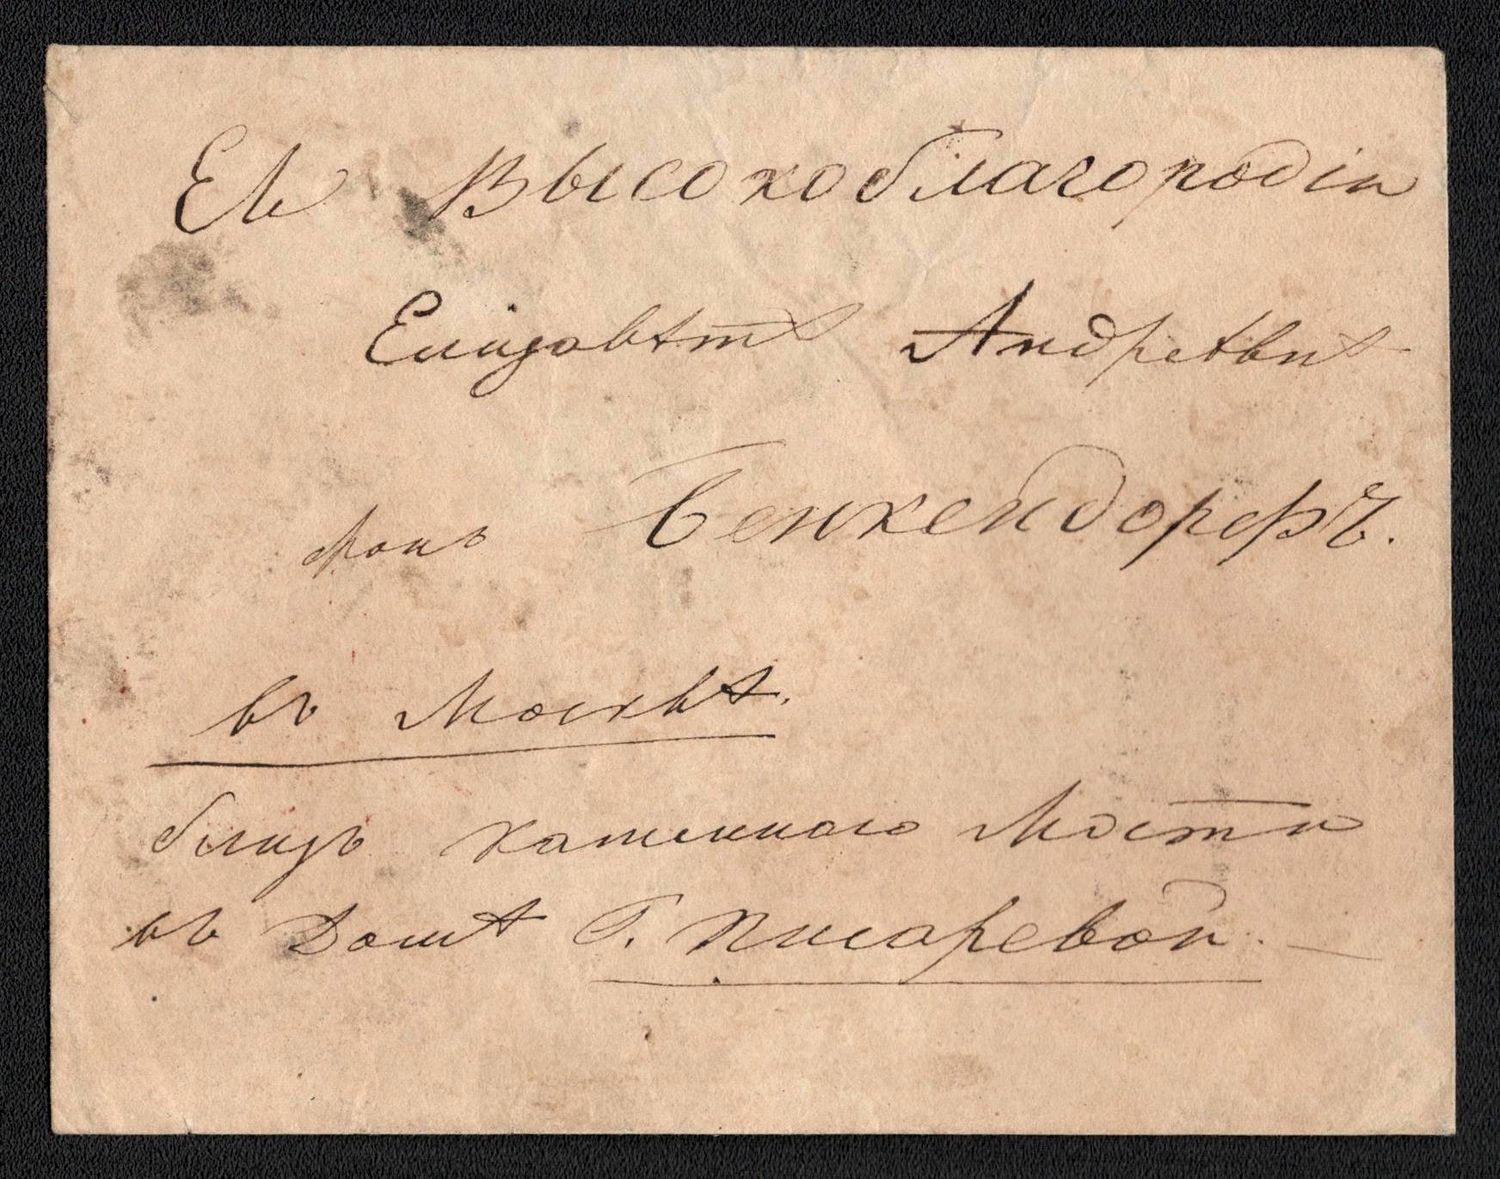 Ея Высокоблагородiю
Елизаветѣ Андреевнѣ
фонъ Бенкендорфъ.
въ Москвѣ.
близъ каменного Моста
въ Домѣ Г. Писаревой.